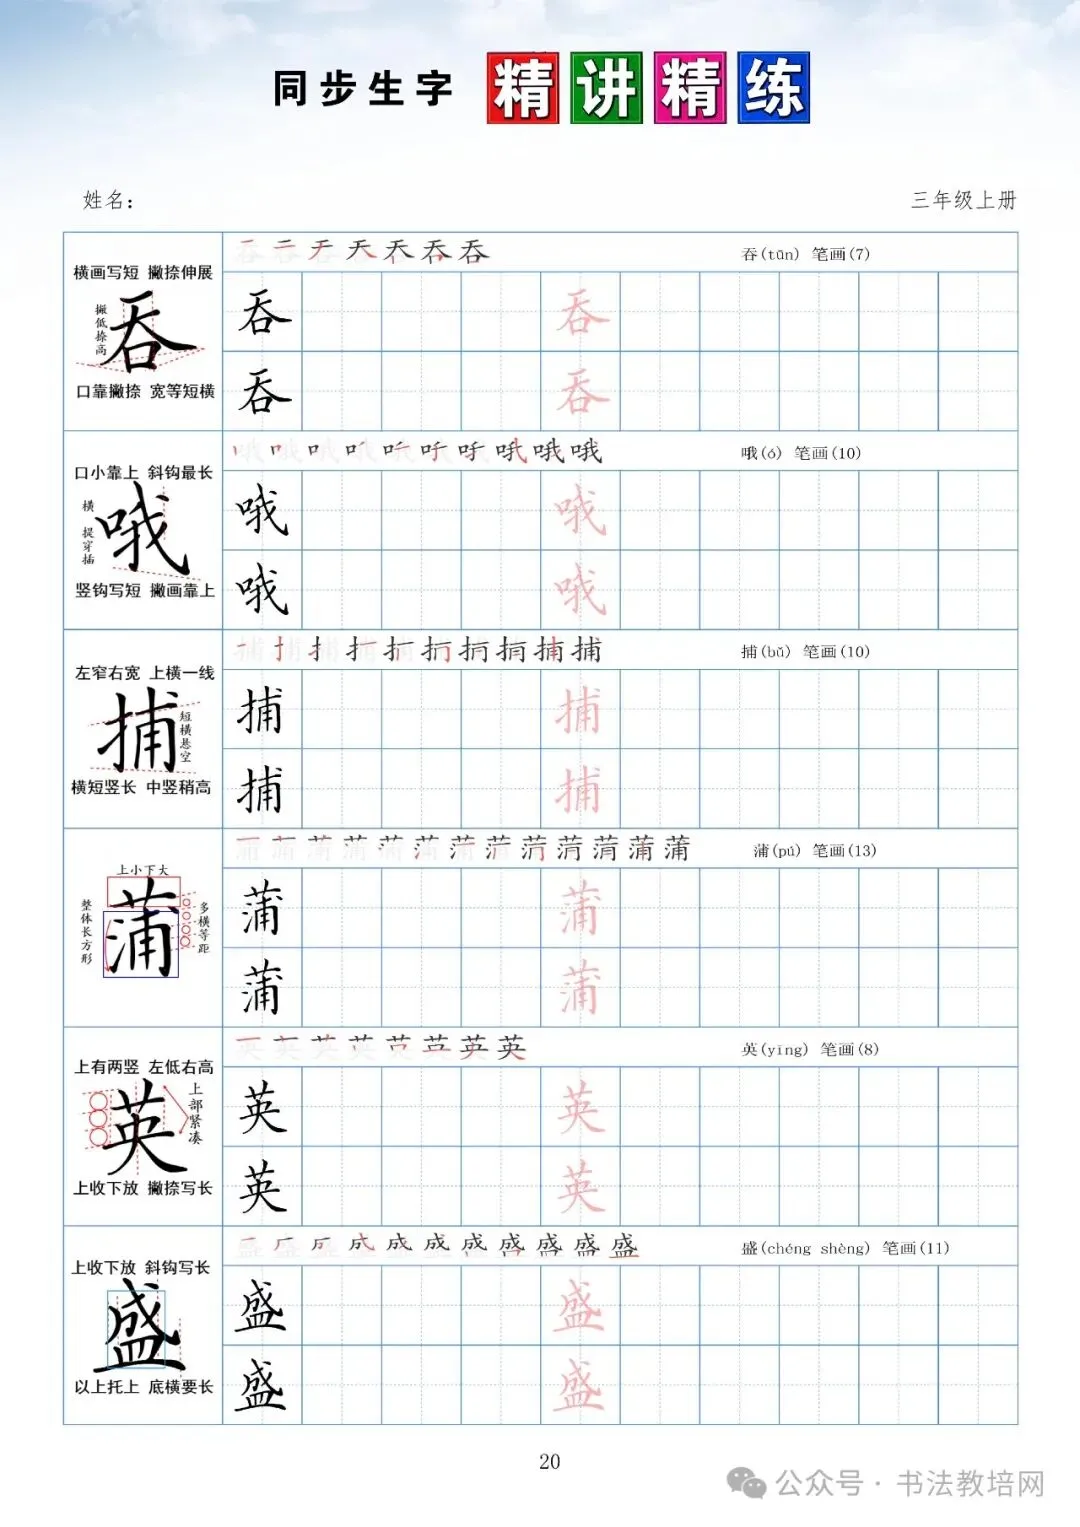 同步生字 精讲精练
姓名：
三年级上册
横画写短 撇捺伸展
撇低捺高
吞
口靠撇捺 宽等短横
吞(tūn) 笔画(7)
吞 吞
吞 吞
口小靠上 斜钩最长
横 提穿插
哦
竖钩写短 撇画靠上
哦(ó) 笔画(10)
哦 哦
哦 哦
左窄右宽 上横一线
捕
短横悬空
横短竖长 中竖稍高
捕(bǔ) 笔画(10)
捕 捕
捕 捕
上小下大
整体长方形
蒲
多横等距
蒲(pú) 笔画(13)
蒲 蒲
蒲 蒲
上有两竖 左低右高
英
上部紧凑
上收下放 撇捺写长
英(yīng) 笔画(8)
英 英
英 英
上收下放 斜钩写长
盛
以上托上 底横要长
盛(chéng shèng) 笔画(11)
盛 盛
盛 盛
20
公众号·书法教培网